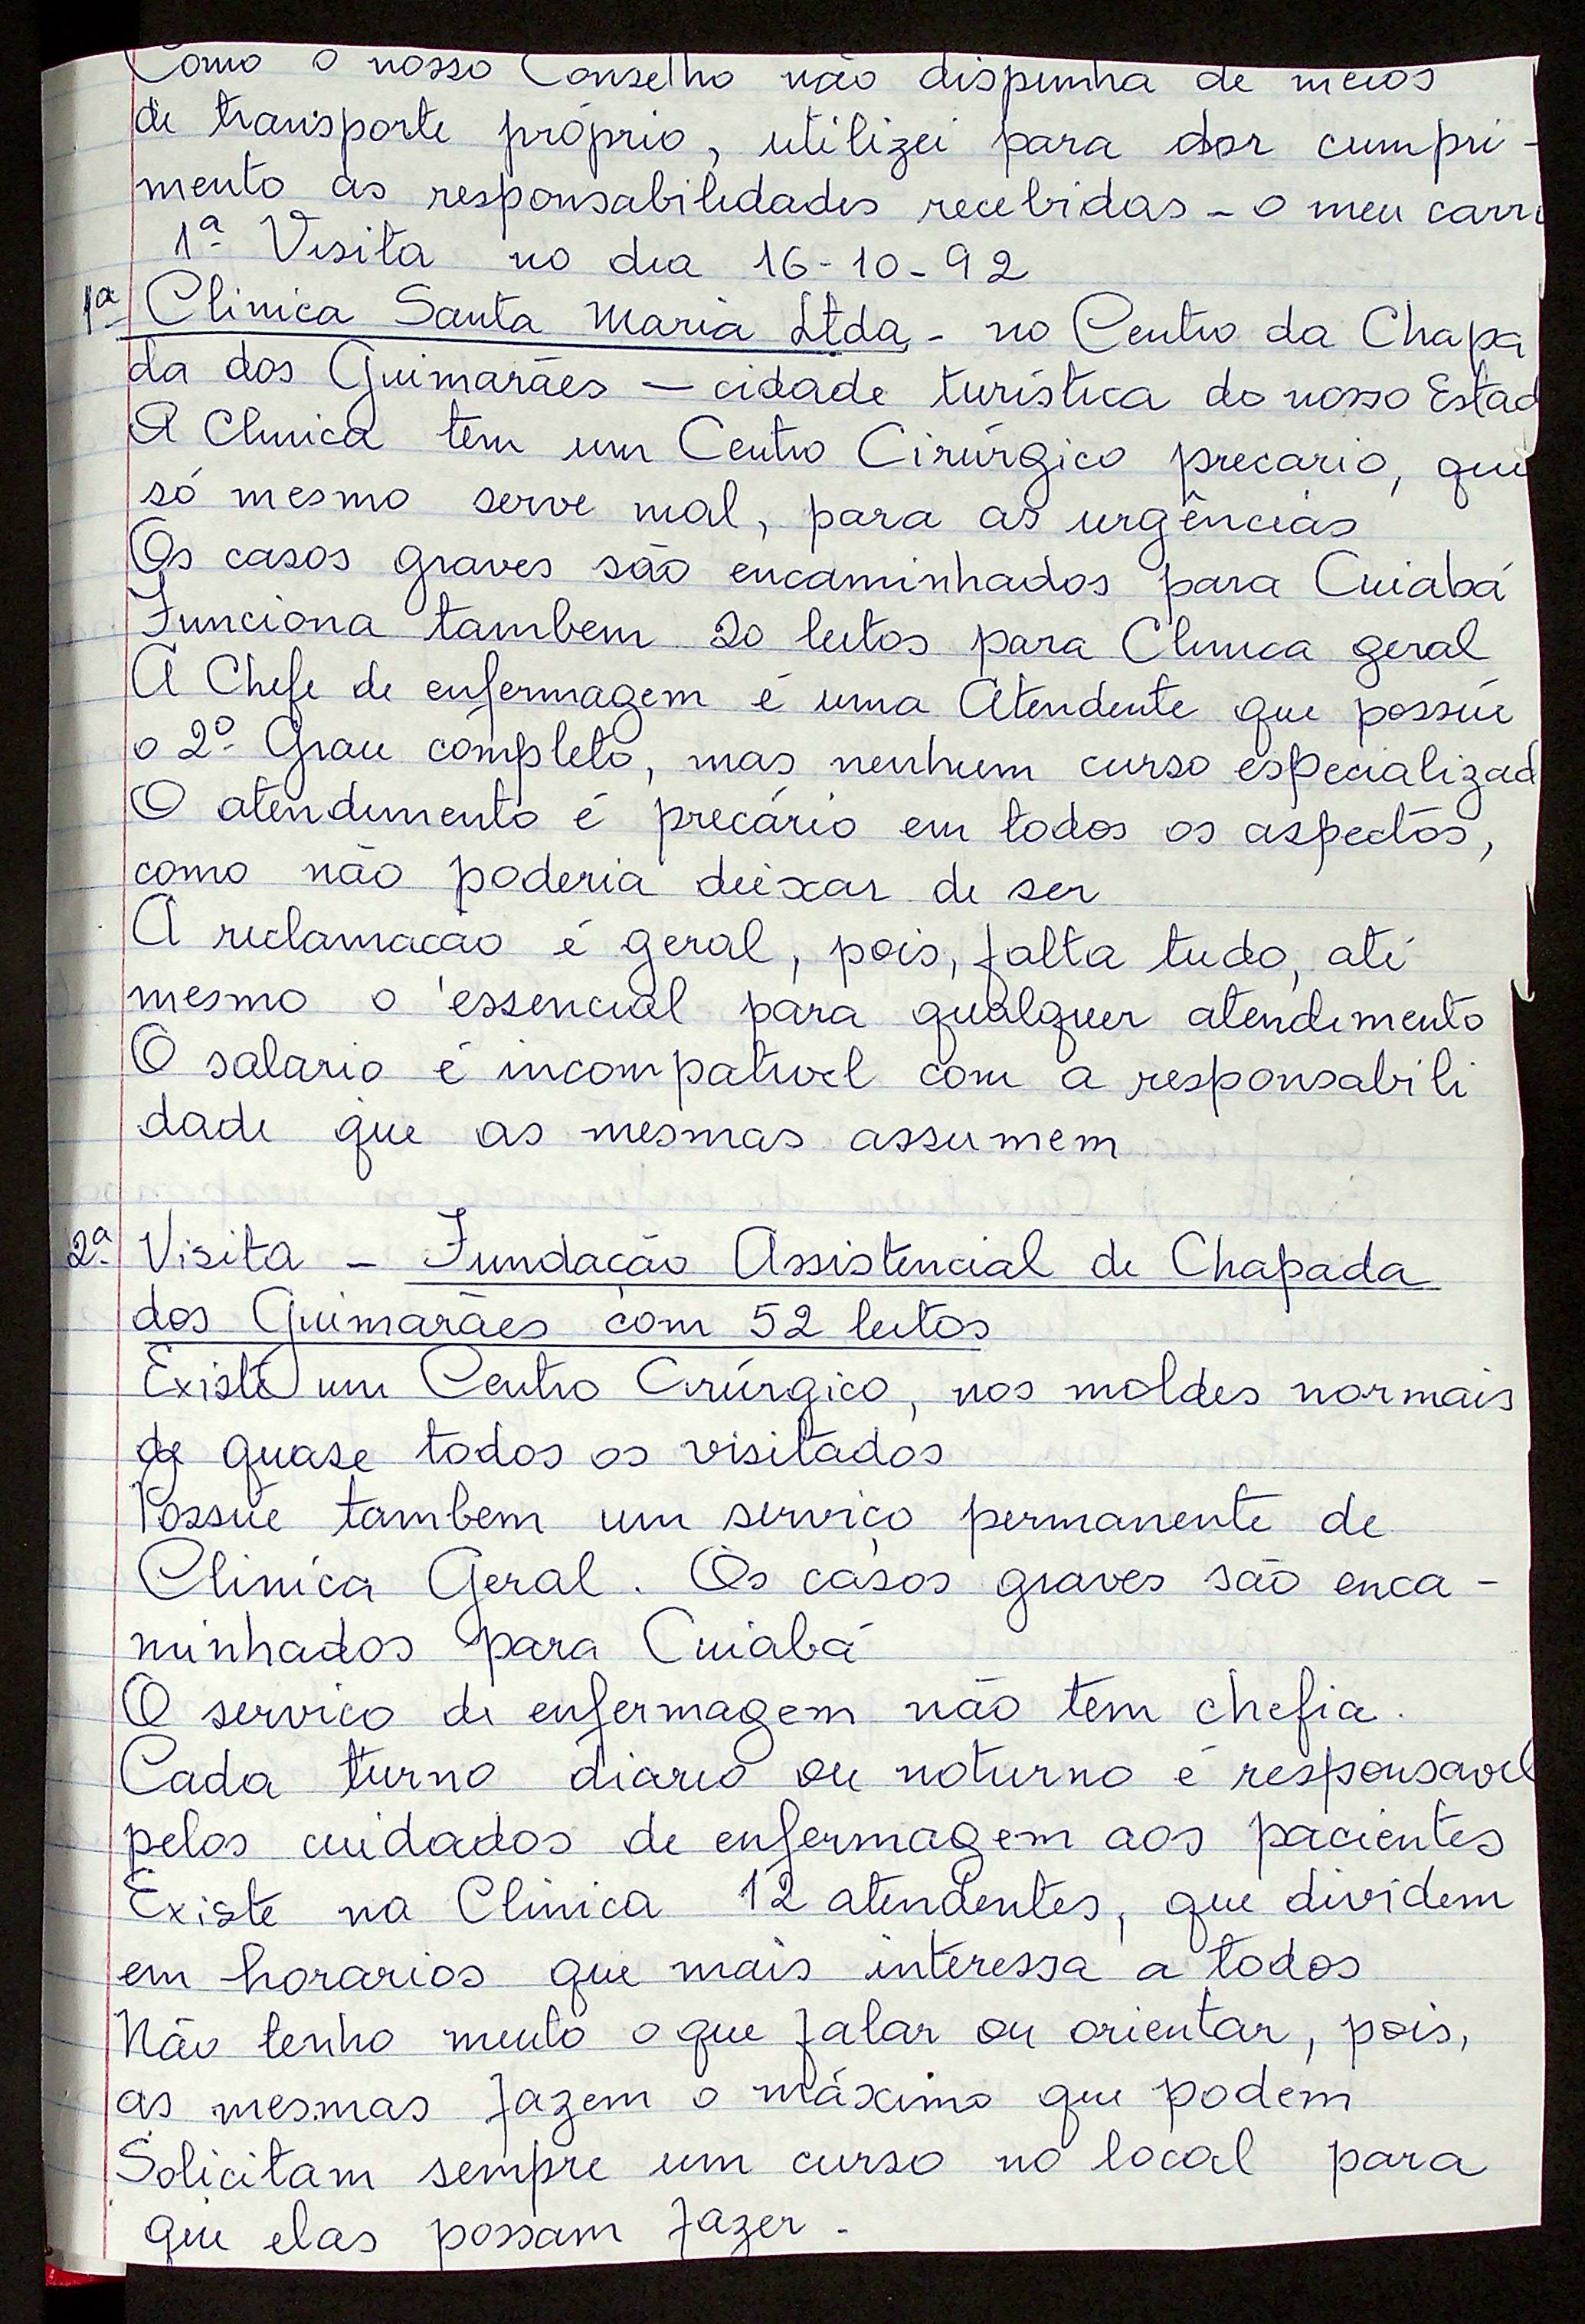 Como o nosso Conselho não dispunha de meios
de transporte próprio, utilizei para dar cumpri-
mento as responsabilidades recebidas - o meu carr
1ª Visita no dia 16-10-92
1ª Clinica Santa Maria Ltda - no Centro da Chapa
da dos Guimarães — cidade turística do nosso Estad
A Clinica têm um Centro Cirúrgico precario, que
só mesmo serve mal, para as urgências
Os casos graves são encaminhados para Cuiabá
Funciona tambem 20 leitos para Clinica geral
A Chefe de enfermagem é uma Atendente que possúe
o 2º Grau completo, mas nenhum curso especializad
O atendimento é precário em todos os aspectos,
como não poderia deixar de ser
A reclamação é geral, pois, falta tudo, até
mesmo o essencial para qualquer atendimento
O salario é incompativel com a responsabili
dade que as mesmas assumem
2ª Visita - Fundação Assistencial de Chapada
dos Guimarães com 52 leitos
Existe um Centro Cirúrgico, nos moldes normais
de quase todos os visitados
Possúe tambem um serviço permanente de
Clinica Geral. Os casos graves são enca-
minhados para Cuiabá
O serviço de enfermagem não tem chefia.
Cada turno diario ou noturno é responsavel
pelos cuidados de enfermagem aos pacientes
Existe na Clinica 12 atendentes, que dividem
em horarios que mais interessa a todos
Não tenho muito o que falar ou orientar, pois,
as mesmas fazem o máximo que podem
Solicitam sempre um curso no local para
que elas possam fazer.